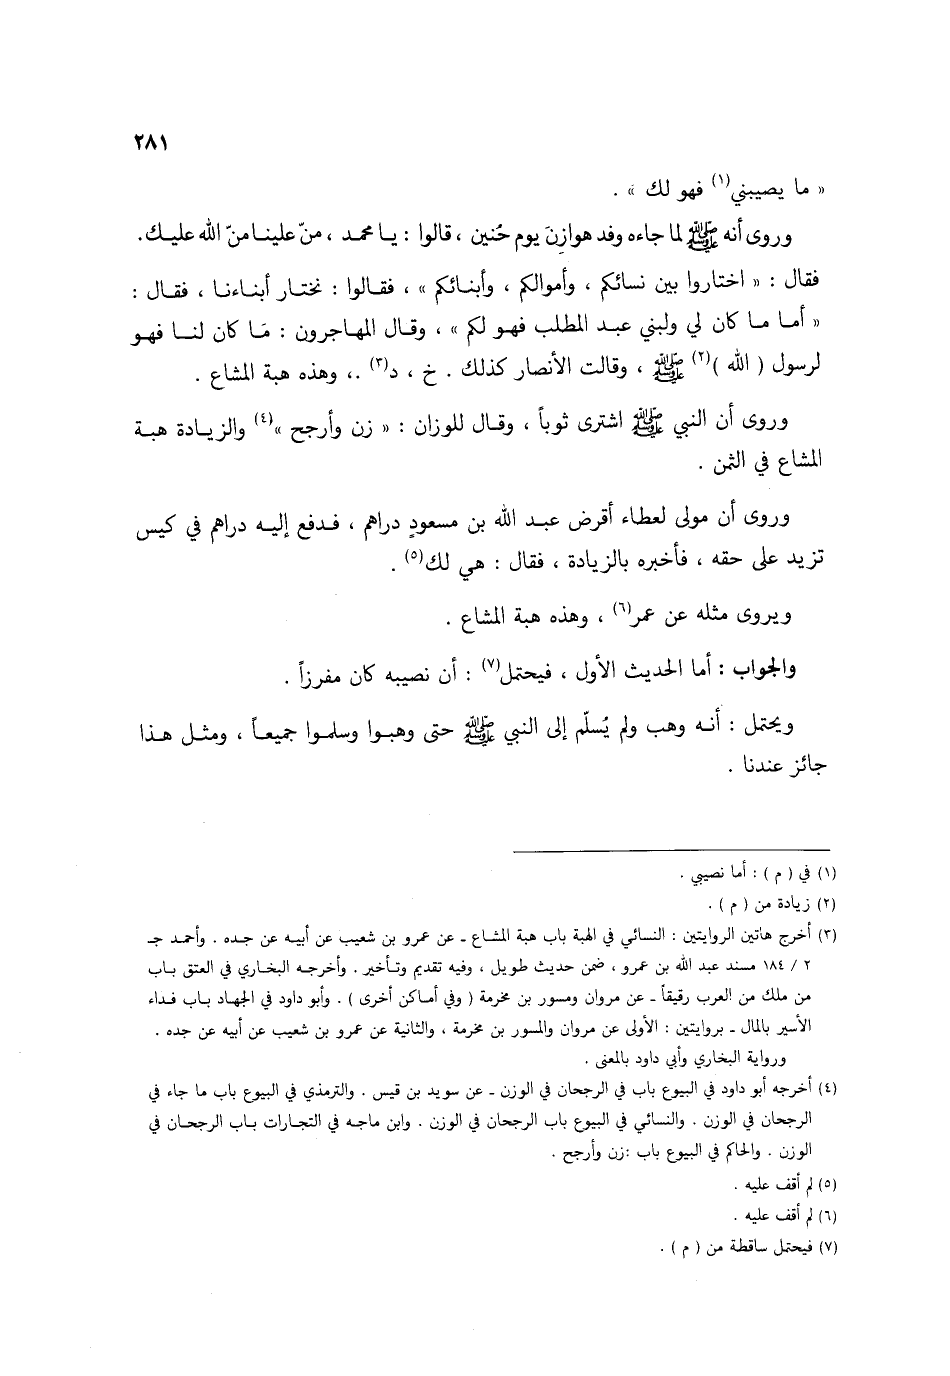 ٢٨١
« ما يصيبني(١) فهو لك » .
وروى أنه ﷺ لما جاءه وفد هوازن يوم حُنين ، قالوا : يـا محمـد ، منّ علينـا منّ الله عليـك.
فقال : « اختاروا بين نسائكم ، وأموالكم ، وأبنـائكم » ، فقـالوا : نختـار أبنـاءنـا ، فقـال :
« أمـا مـا كان لي ولبني عبـد المطلب فهـو لكم » ، وقـال المهـاجرون : مَـا كان لنـا فهـو
لرسول ( الله )(٢) ﷺ ، وقالت الأنصار كذلك . خ ، د(٣) .، وهذه هبة المشاع .
وروى أن النبي ﷺ اشترى ثوباً ، وقـال للوزان : « زن وأرجح »(٤) والزيـادة هبـة
المشاع في الثمن .
وروى أن مولى لعطاء أقرض عبـد الله بن مسعودٍ دراهم ، فـدفع إليـه دراهم في كيس
تزيد على حقه ، فأخبره بالزيادة ، فقال : هي لك(٥) .
ويروى مثله عن عمر(٦) ، وهذه هبة المشاع .
والجواب : أما الحديث الأول ، فيحتمل(٧) : أن نصيبه كان مفرزاً .
ويحتمل : أنـه وهب ولم يُسلّم إلى النبي ﷺ حتى وهبـوا وسلمـوا جميعـاً ، ومثـل هـذا
جائز عندنا .
(١) في ( م ) : أما نصيبي .
(٢) زيادة من ( م ) .
(٣) أخرج هاتين الروايتين : النسائي في الهبة باب هبة المشـاع ـ عن عمرو بن شعيب عن أبيـه عن جـده . وأحمـد جـ
٢ / ١٨٤ مسند عبد الله بن عمرو ، ضمن حديث طويل ، وفيه تقديم وتـأخير . وأخرجـه البخـاري في العتق بـاب
من ملك من العرب رقيقاً ـ عن مروان ومسور بن مخرمة ( وفي أمـاكن أخرى ) . وأبو داود في الجهـاد بـاب فـداء
الأسير بالمال ـ بروايتين : الأولى عن مروان والمسور بن مخرمة ، والثانية عن عمرو بن شعيب عن أبيه عن جده .
ورواية البخاري وأبي داود بالمعنى .
(٤) أخرجه أبو داود في البيوع باب في الرجحان في الوزن ـ عن سويد بن قيس . والترمذي في البيوع باب ما جاء في
الرجحان في الوزن . والنسائي في البيوع باب الرجحان في الوزن . وابن ماجـه في التجـارات بـاب الرجحـان في
الوزن . والحاكم في البيوع باب :زن وأرجح .
(٥) لم أقف عليه .
(٦) لم أقف عليه .
(٧) فيحتمل ساقطة من ( م ) .